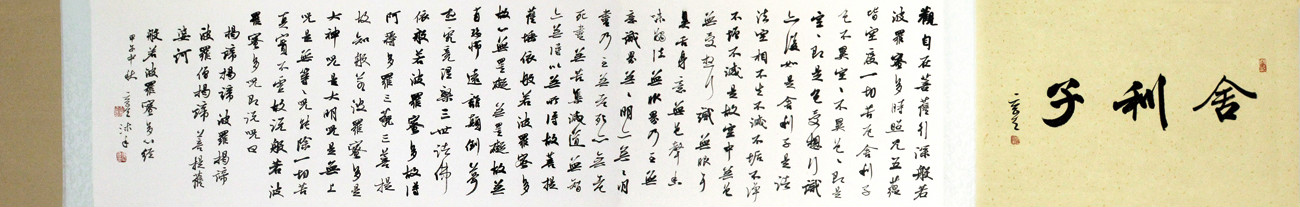 舍利子
觀自在菩薩行深般若
波羅蜜多時照見五蘊
皆空度一切苦厄舍利子
色不異空〻不異色〻即是
空〻即是色受想行識
亦復如是舍利子是諸
法空相不生不滅不垢不淨
不增不減是故空中無色
無受想行識無眼耳
鼻舌身意無色聲香
味觸法無眼界乃至無
意識界無〻明亦無〻明
盡乃至無老死亦無老
死盡無苦集滅道無智
亦無得以無所得故菩提
薩埵依般若波羅蜜多
故心無罣礙無罣礙故無
有恐怖遠離顛倒夢
想究竟涅槃三世諸佛
依般若波羅蜜多故得
阿耨多羅三藐三菩提
故知般若波羅蜜多是
大神咒是大明咒是無上
咒是無等〻咒能除一切苦
真實不虛故說般若波
羅蜜多咒即說咒曰
揭諦揭諦波羅揭諦
波羅僧揭諦 菩提薩
婆訶
般若波羅蜜多心經
甲午中秋 沐手